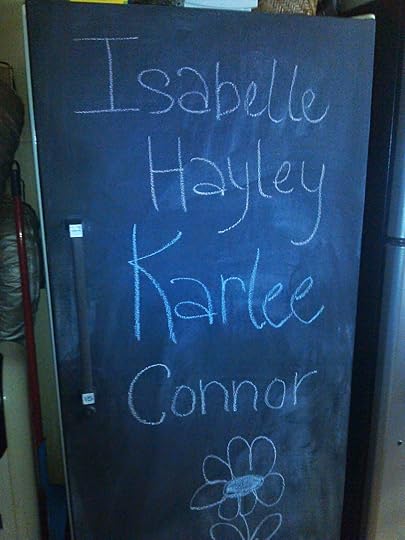 Isabelle
Hayley
Karlee
Connor